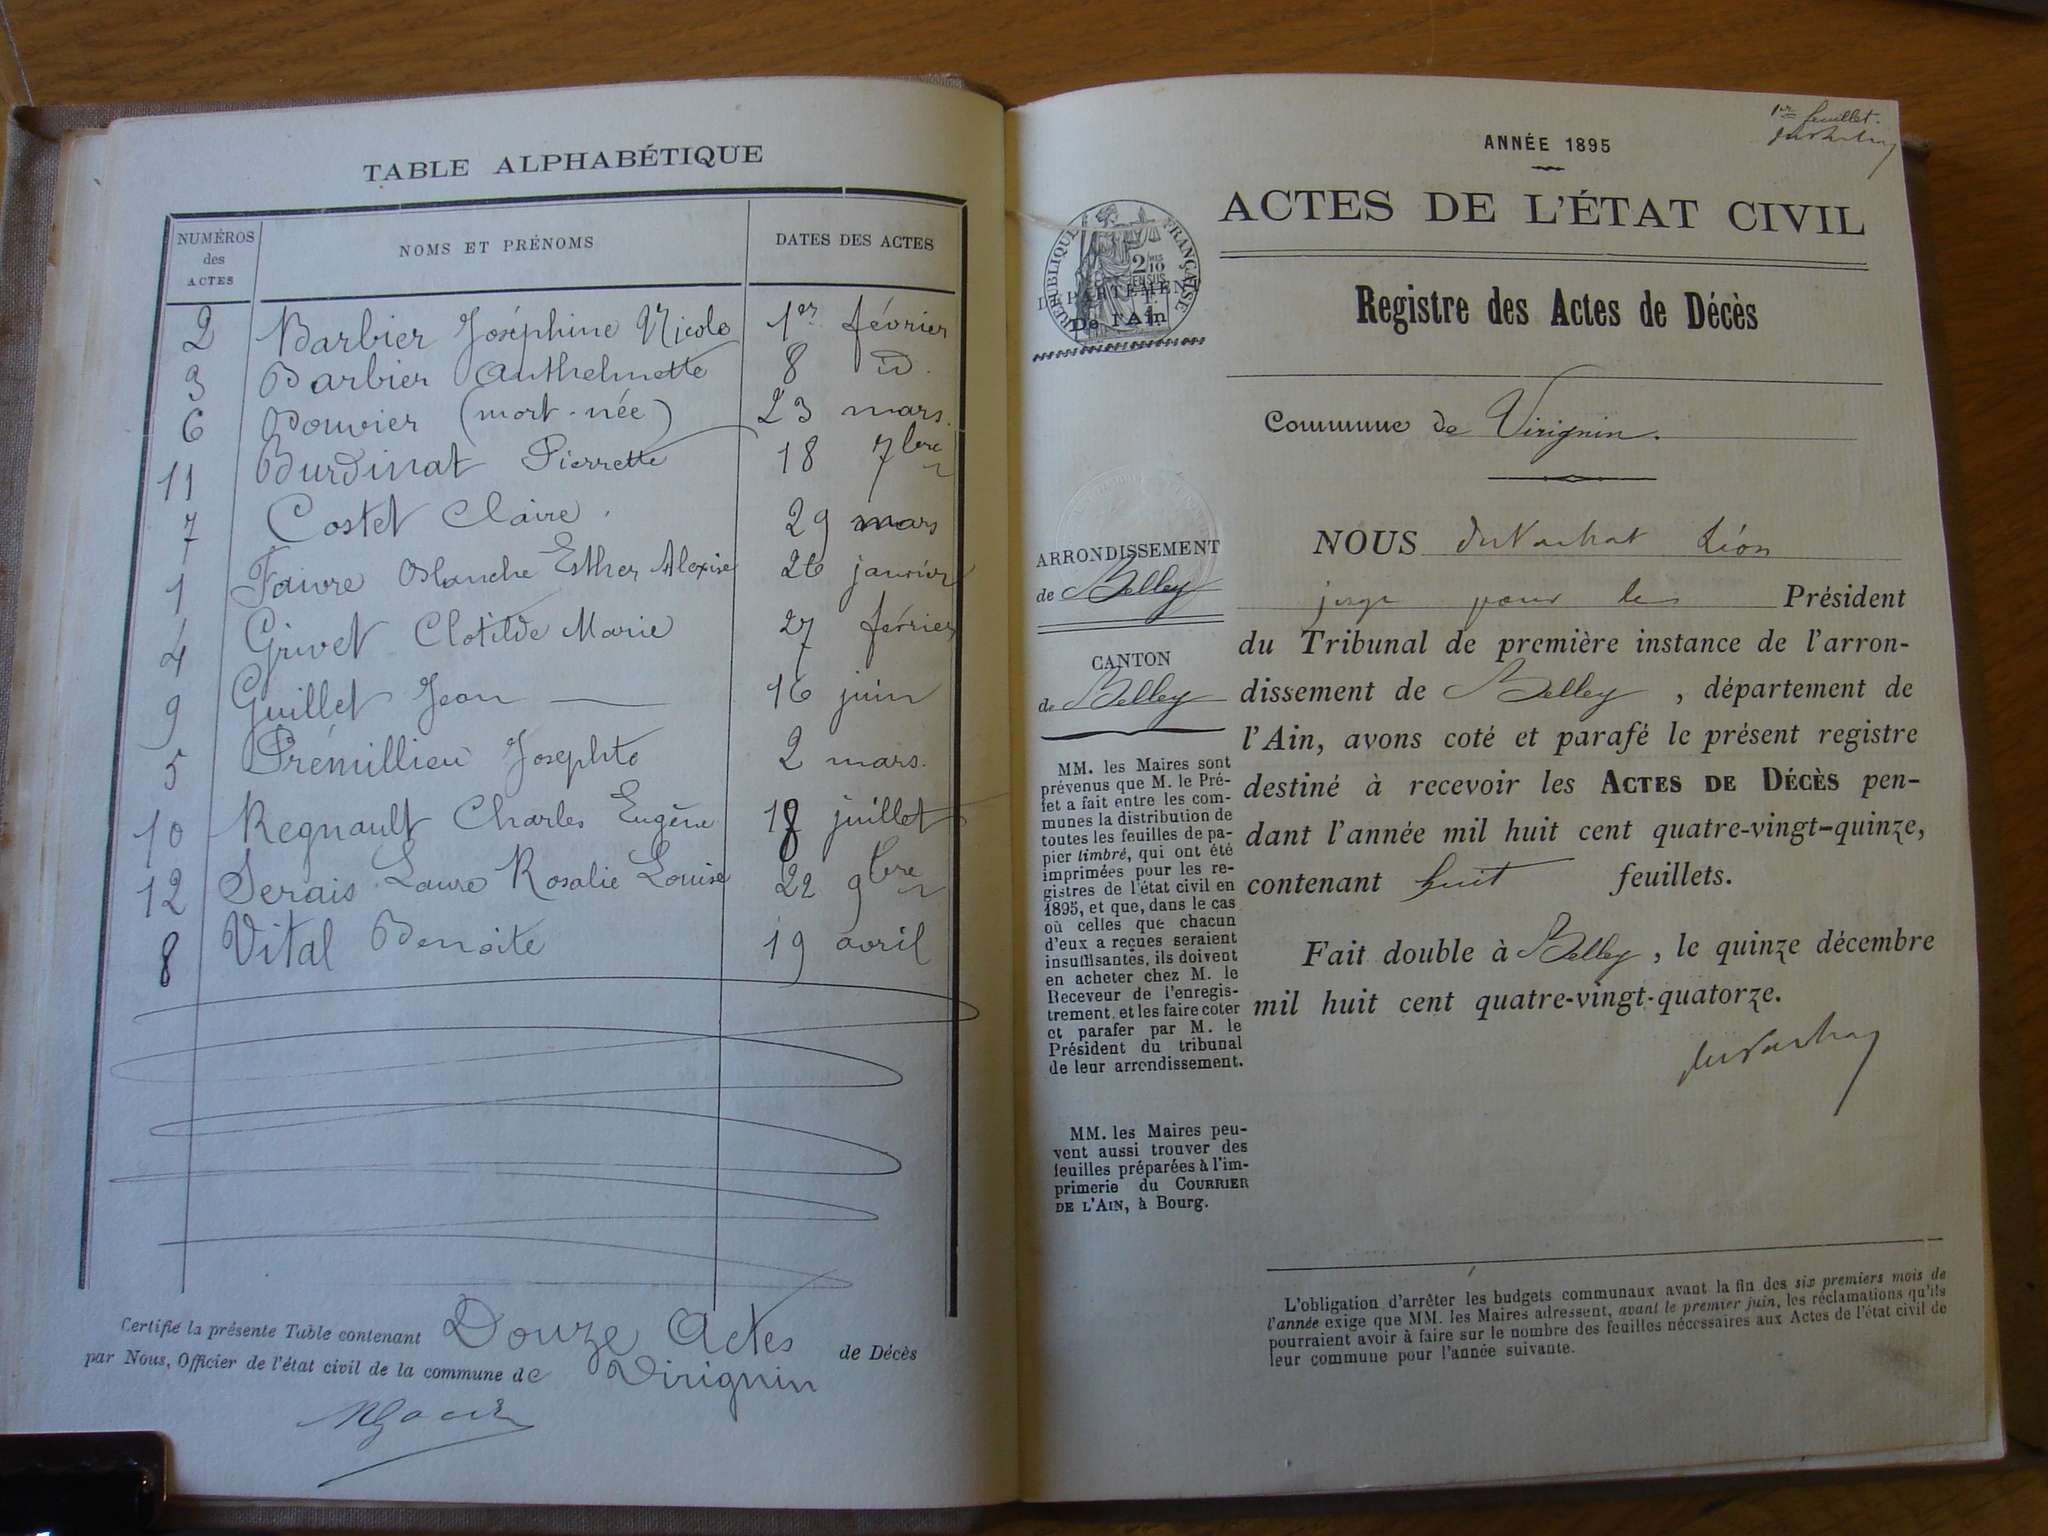 TABLE ALPHABÉTIQUE
NUMÉROS des ACTES NOMS ET PRÉNOMS DATES DES ACTES
2 Barbier Joséphine Nicole 1er février
3 Barbier Anthelmette 8 id.
6 Bouvier (mort-née) 23 mars.
11 Burdinat Pierrette 18 7bre
7 Costet Claire. 29 mars
1 Faivre Blanche Esther Alexise 26 janvier
4 Grivet Clotilde Marie 27 février
9 Guillet Jean 16 juin
5 Prémillieu Josephte 2 mars.
10 Regnault Charles Eugène 18 juillet
12 Serais Laure Rosalie Louise 22 9bre
8 Vital Benoîte 19 avril
Certifié la présente Table contenant Douze Actes de Décès
par Nous, Officier de l'état civil de la commune de Virignin
1er feuillet.
ANNÉE 1895
ACTES DE L'ÉTAT CIVIL
RÉPUBLIQUE FRANÇAISE
2/10 EN SUS
DÉPARTEMENT
De l'Ain
Registre des Actes de Décès
Commune de Virignin.
ARRONDISSEMENT
de Belley
CANTON
de Belley
MM. les Maires sont
prévenus que M. le Pré-
fet a fait entre les com-
munes la distribution de
toutes les feuilles de pa-
pier timbré, qui ont été
imprimées pour les re-
gistres de l'état civil en
1895, et que, dans le cas
où celles que chacun
d'eux a reçues seraient
insuffisantes, ils doivent
en acheter chez M. le
Receveur de l'enregis-
trement, et les faire coter
et parafer par M. le
Président du tribunal
de leur arrondissement.
MM. les Maires peu-
vent aussi trouver des
feuilles préparées à l'im-
primerie du COURRIER
DE L'AIN, à Bourg.
NOUS Duvachat Léon
juge pour le Président
du Tribunal de première instance de l'arron-
dissement de Belley, département de
l'Ain, avons coté et parafé le présent registre
destiné à recevoir les ACTES DE DÉCÈS pen-
dant l'année mil huit cent quatre-vingt-quinze,
contenant huit feuillets.
Fait double à Belley, le quinze décembre
mil huit cent quatre-vingt-quatorze.
L'obligation d'arrêter les budgets communaux avant la fin des six premiers mois de
l'année exige que MM. les Maires adressent, avant le premier juin, les réclamations qu'ils
pourraient avoir à faire sur le nombre des feuilles nécessaires aux Actes de l'état civil de
leur commune pour l'année suivante.